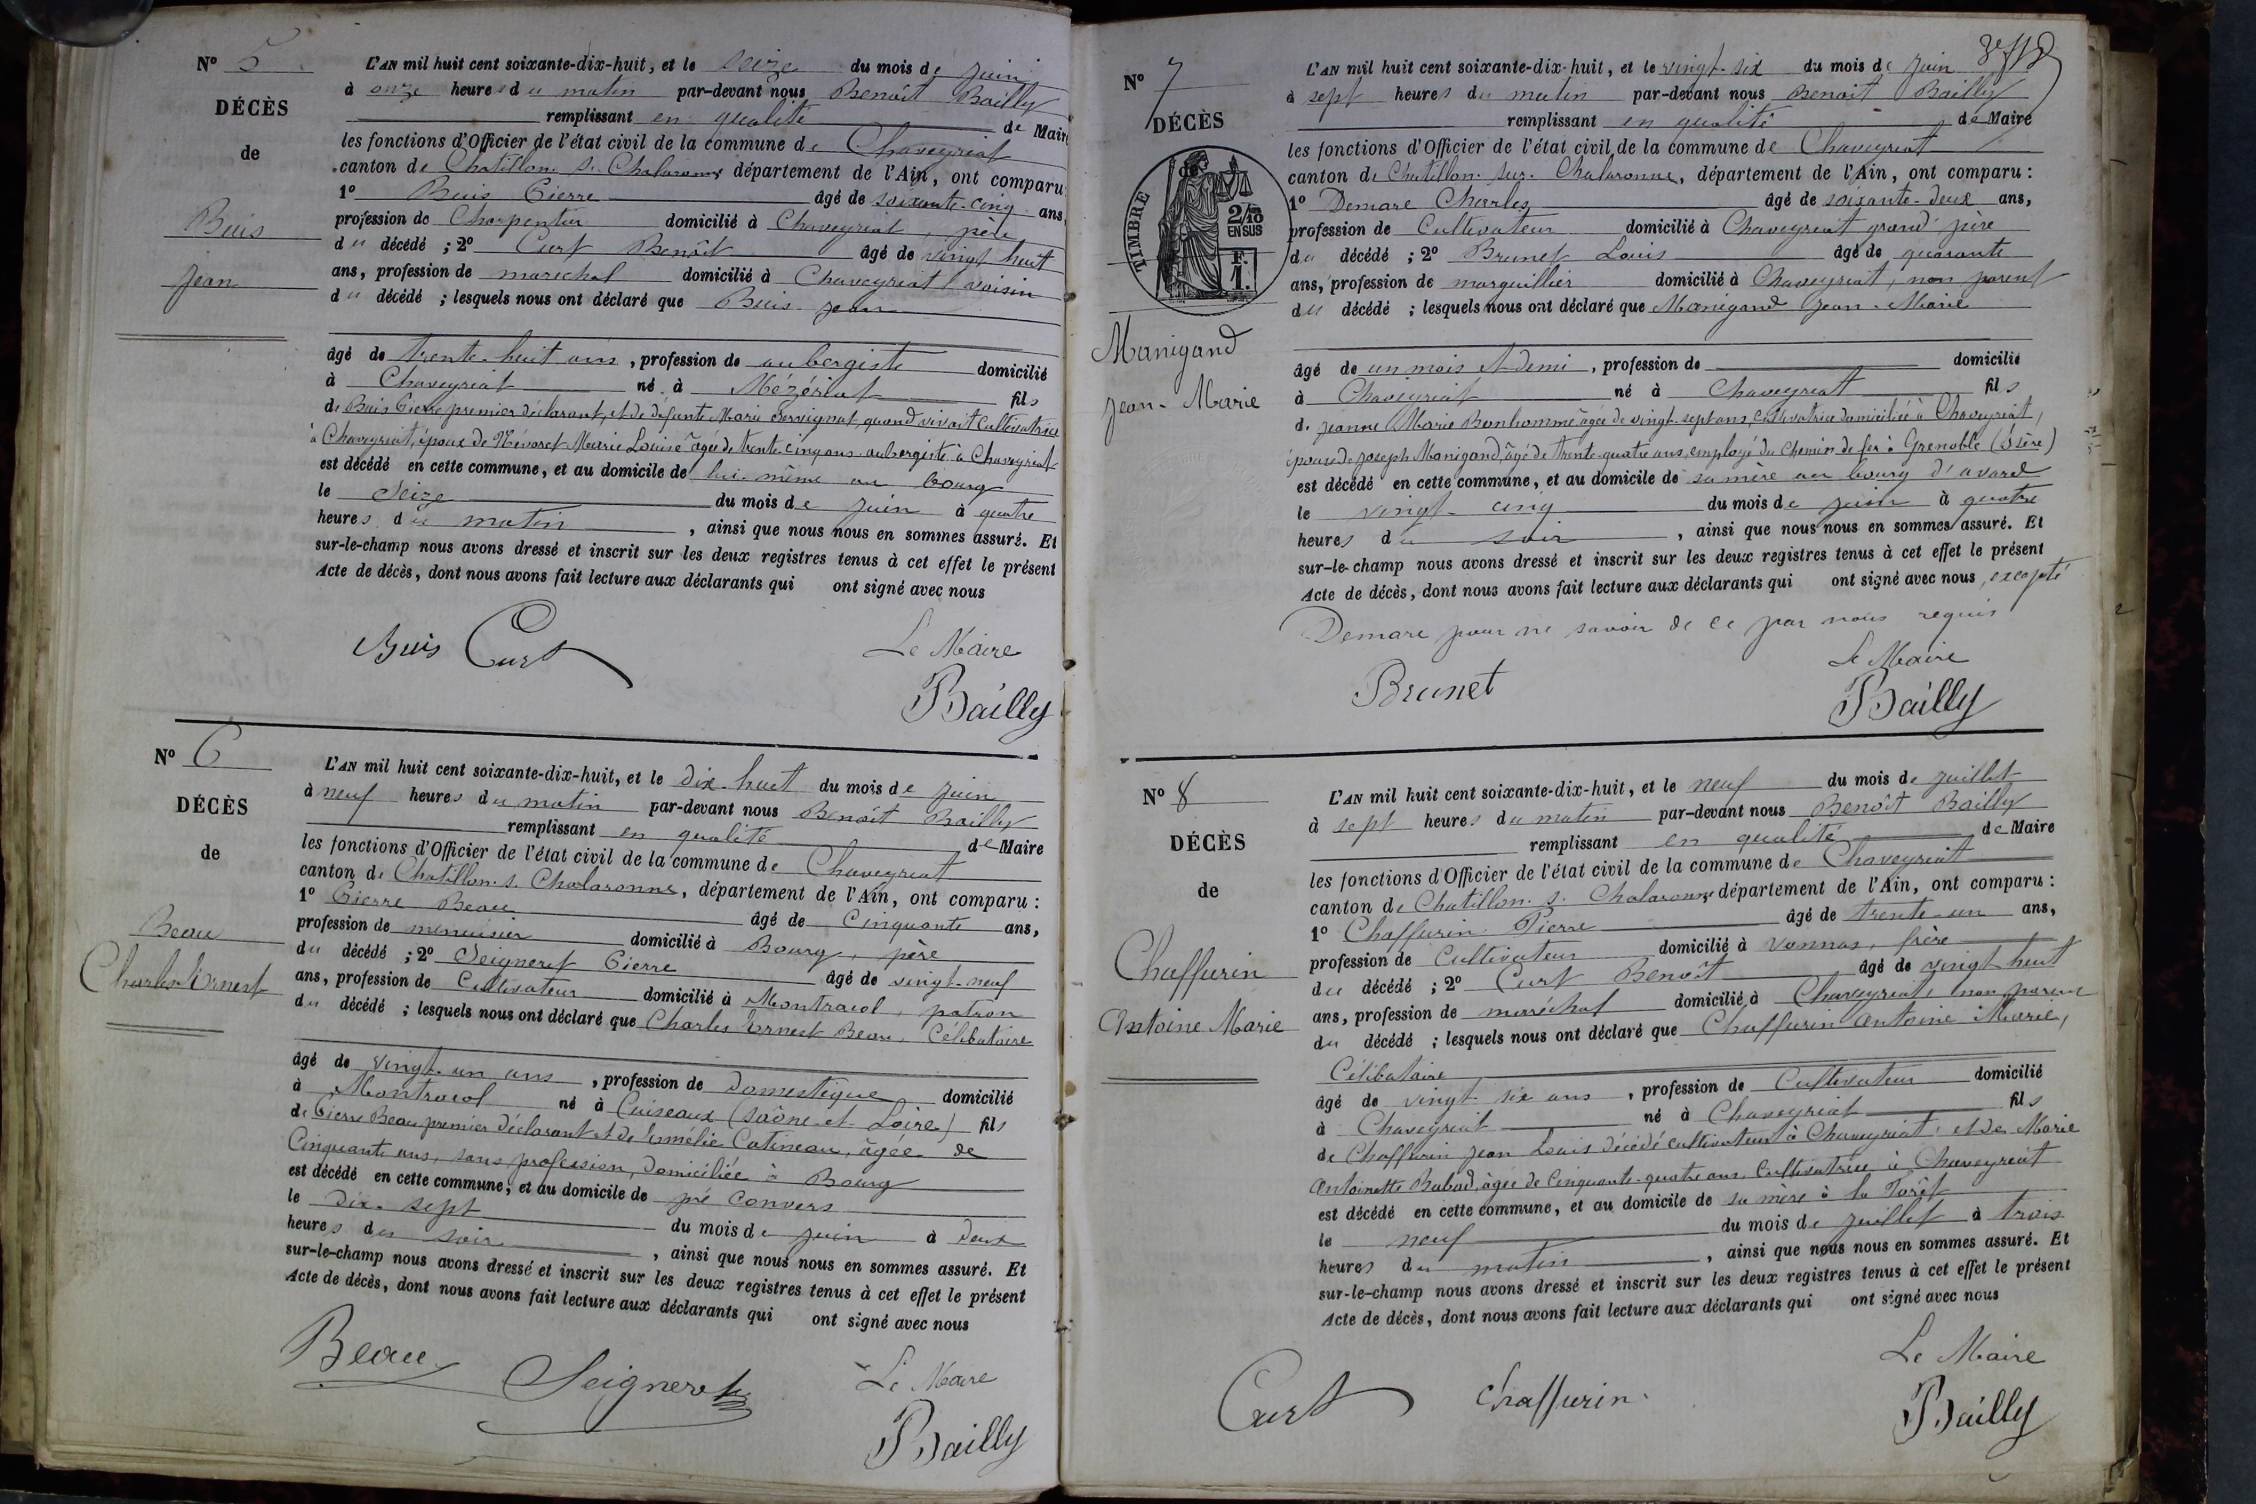 N° 5
DÉCÈS
de
Buis
Jean
L'AN mil huit cent soixante-dix-huit, et le seize du mois de juin
à onze heures du matin par-devant nous Benoît Bailly
remplissant en qualité de Maire
les fonctions d'Officier de l'état civil de la commune de Chaveyriat
canton de Chatillon s. Chalaronne département de l'Ain, ont comparu
1° Buis Pierre âgé de soixante-cinq ans,
profession de Charpentier domicilié à Chaveyriat, père
du décédé ; 2° Curt Benoît âgé de vingt huit
ans, profession de maréchal domicilié à Chaveyriat, voisin
du décédé ; lesquels nous ont déclaré que Buis Jean
âgé de trente-huit ans, profession de aubergiste domicilié
à Chaveyriat né à Mézériat fils
de Buis Pierre premier déclarant, et de défunte Marie Servignat, quand vivait Cultivatrice
à Chaveyriat, époux de Marie Louise âgée de trente cinq ans aubergiste à Chaveyriat
est décédé en cette commune, et au domicile de lui-même au bourg
le seize du mois de juin à quatre
heures du matin, ainsi que nous nous en sommes assuré. Et
sur-le-champ nous avons dressé et inscrit sur les deux registres tenus à cet effet le présent
Acte de décès, dont nous avons fait lecture aux déclarants qui ont signé avec nous
Buis Curt Le Maire
Bailly
N° 6
DÉCÈS
de
Beau
Charles Ernest
L'AN mil huit cent soixante-dix-huit, et le dix-huit du mois de juin
à neuf heures du matin par-devant nous Benoît Bailly
remplissant en qualité de Maire
les fonctions d'Officier de l'état civil de la commune de Chaveyriat
canton de Chatillon s. Chalaronne, département de l'Ain, ont comparu :
1° Pierre Beau âgé de Cinquante ans,
profession de menuisier domicilié à Bourg, père
du décédé ; 2° Seigneret Pierre âgé de vingt-neuf
ans, profession de Cultivateur domicilié à Montracol, patron
du décédé ; lesquels nous ont déclaré que Charles Ernest Beau, Célibataire
âgé de vingt-un ans, profession de Domestique domicilié
à Montracol né à Cuiseaux (Saône-et-Loire) fils
de Pierre Beau premier déclarant et de Emélie Catineau, âgée de
Cinquante ans, sans profession, domiciliée à Bourg
est décédé en cette commune, et au domicile de pré Convers
le Dix-sept du mois de juin à deux
heures du soir, ainsi que nous nous en sommes assuré. Et
sur-le-champ nous avons dressé et inscrit sur les deux registres tenus à cet effet le présent
Acte de décès, dont nous avons fait lecture aux déclarants qui ont signé avec nous
Beau Seigneret Le Maire
Bailly
N° 7
DÉCÈS
de
TIMBRE
2/10 EN SUS
F. 1.
Manigand
Jean-Marie
L'AN mil huit cent soixante-dix-huit, et le vingt-six du mois de juin
à sept heures du matin par-devant nous Benoît Bailly
remplissant en qualité de Maire
les fonctions d'Officier de l'état civil de la commune de Chaveyriat
canton de Chatillon-sur-Chalaronne, département de l'Ain, ont comparu :
1° Demare Charles âgé de soixante-deux ans,
profession de Cultivateur domicilié à Chaveyriat grand'père
du décédé ; 2° Brunet Louis âgé de quarante
ans, profession de marguillier domicilié à Chaveyriat, non parent
du décédé ; lesquels nous ont déclaré que Manigand Jean-Marie
âgé de un mois et demi, profession de domicilié
à Chaveyriat né à Chaveyriat fils
de Jeanne Marie Bonhomme âgée de vingt-sept ans, cultivatrice domiciliée à Chaveyriat,
épouse de Joseph Manigand, âgé de trente-quatre ans, employé du Chemin de fer à Grenoble (Isère)
est décédé en cette commune, et au domicile de sa mère au bourg d'avard
le vingt-cinq du mois de juin à quatre
heures du soir, ainsi que nous nous en sommes assuré. Et
sur-le-champ nous avons dressé et inscrit sur les deux registres tenus à cet effet le présent
Acte de décès, dont nous avons fait lecture aux déclarants qui ont signé avec nous, excepté
Demare pour ne savoir de ce par nous requis
Le Maire
Brunet Bailly
N° 8
DÉCÈS
de
Chaffurin
Antoine Marie
L'AN mil huit cent soixante-dix-huit, et le neuf du mois de juillet
à sept heures du matin par-devant nous Benoît Bailly
remplissant en qualité de Maire
les fonctions d'Officier de l'état civil de la commune de Chaveyriat
canton de Chatillon s. Chalaronne département de l'Ain, ont comparu :
1° Chaffurin Pierre âgé de trente-un ans,
profession de Cultivateur domicilié à Vonnas, frère
du décédé ; 2° Curt Benoît âgé de vingt huit
ans, profession de maréchal domicilié à Chaveyriat, non parent
du décédé ; lesquels nous ont déclaré que Chaffurin Antoine Marie,
Célibataire
âgé de vingt-six ans, profession de Cultivateur domicilié
à Chaveyriat né à Chaveyriat fils
de Chaffurin Jean Louis décédé cultivateur à Chaveyriat, et de Marie
Antoinette Babad, âgée de Cinquante-quatre ans, Cultivatrice à Chaveyriat
est décédé en cette commune, et au domicile de sa mère à la Forêt
le neuf du mois de juillet à trois
heures du matin, ainsi que nous nous en sommes assuré. Et
sur-le-champ nous avons dressé et inscrit sur les deux registres tenus à cet effet le présent
Acte de décès, dont nous avons fait lecture aux déclarants qui ont signé avec nous
Le Maire
Curt Chaffurin Bailly